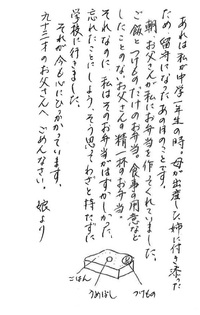 あれは私が中学一年生の時。母が出産した姉に付き添った
ため留守になったあの日のことです。
朝、お父さんが私にお弁当を作ってくれていました。
ご飯とつけものだけのお弁当。食事の用意など
したことのないお父さんの精一杯のお弁当。
それなのに、私はそのお弁当がはずかしかった。
忘れたことにしよう、そう思ってわざと持たずに
学校に行きました。
それが今も心にひっかかっています。
九十三才のお父さんへ ごめんなさい。 娘より
ごはん
うめぼし
つけもの